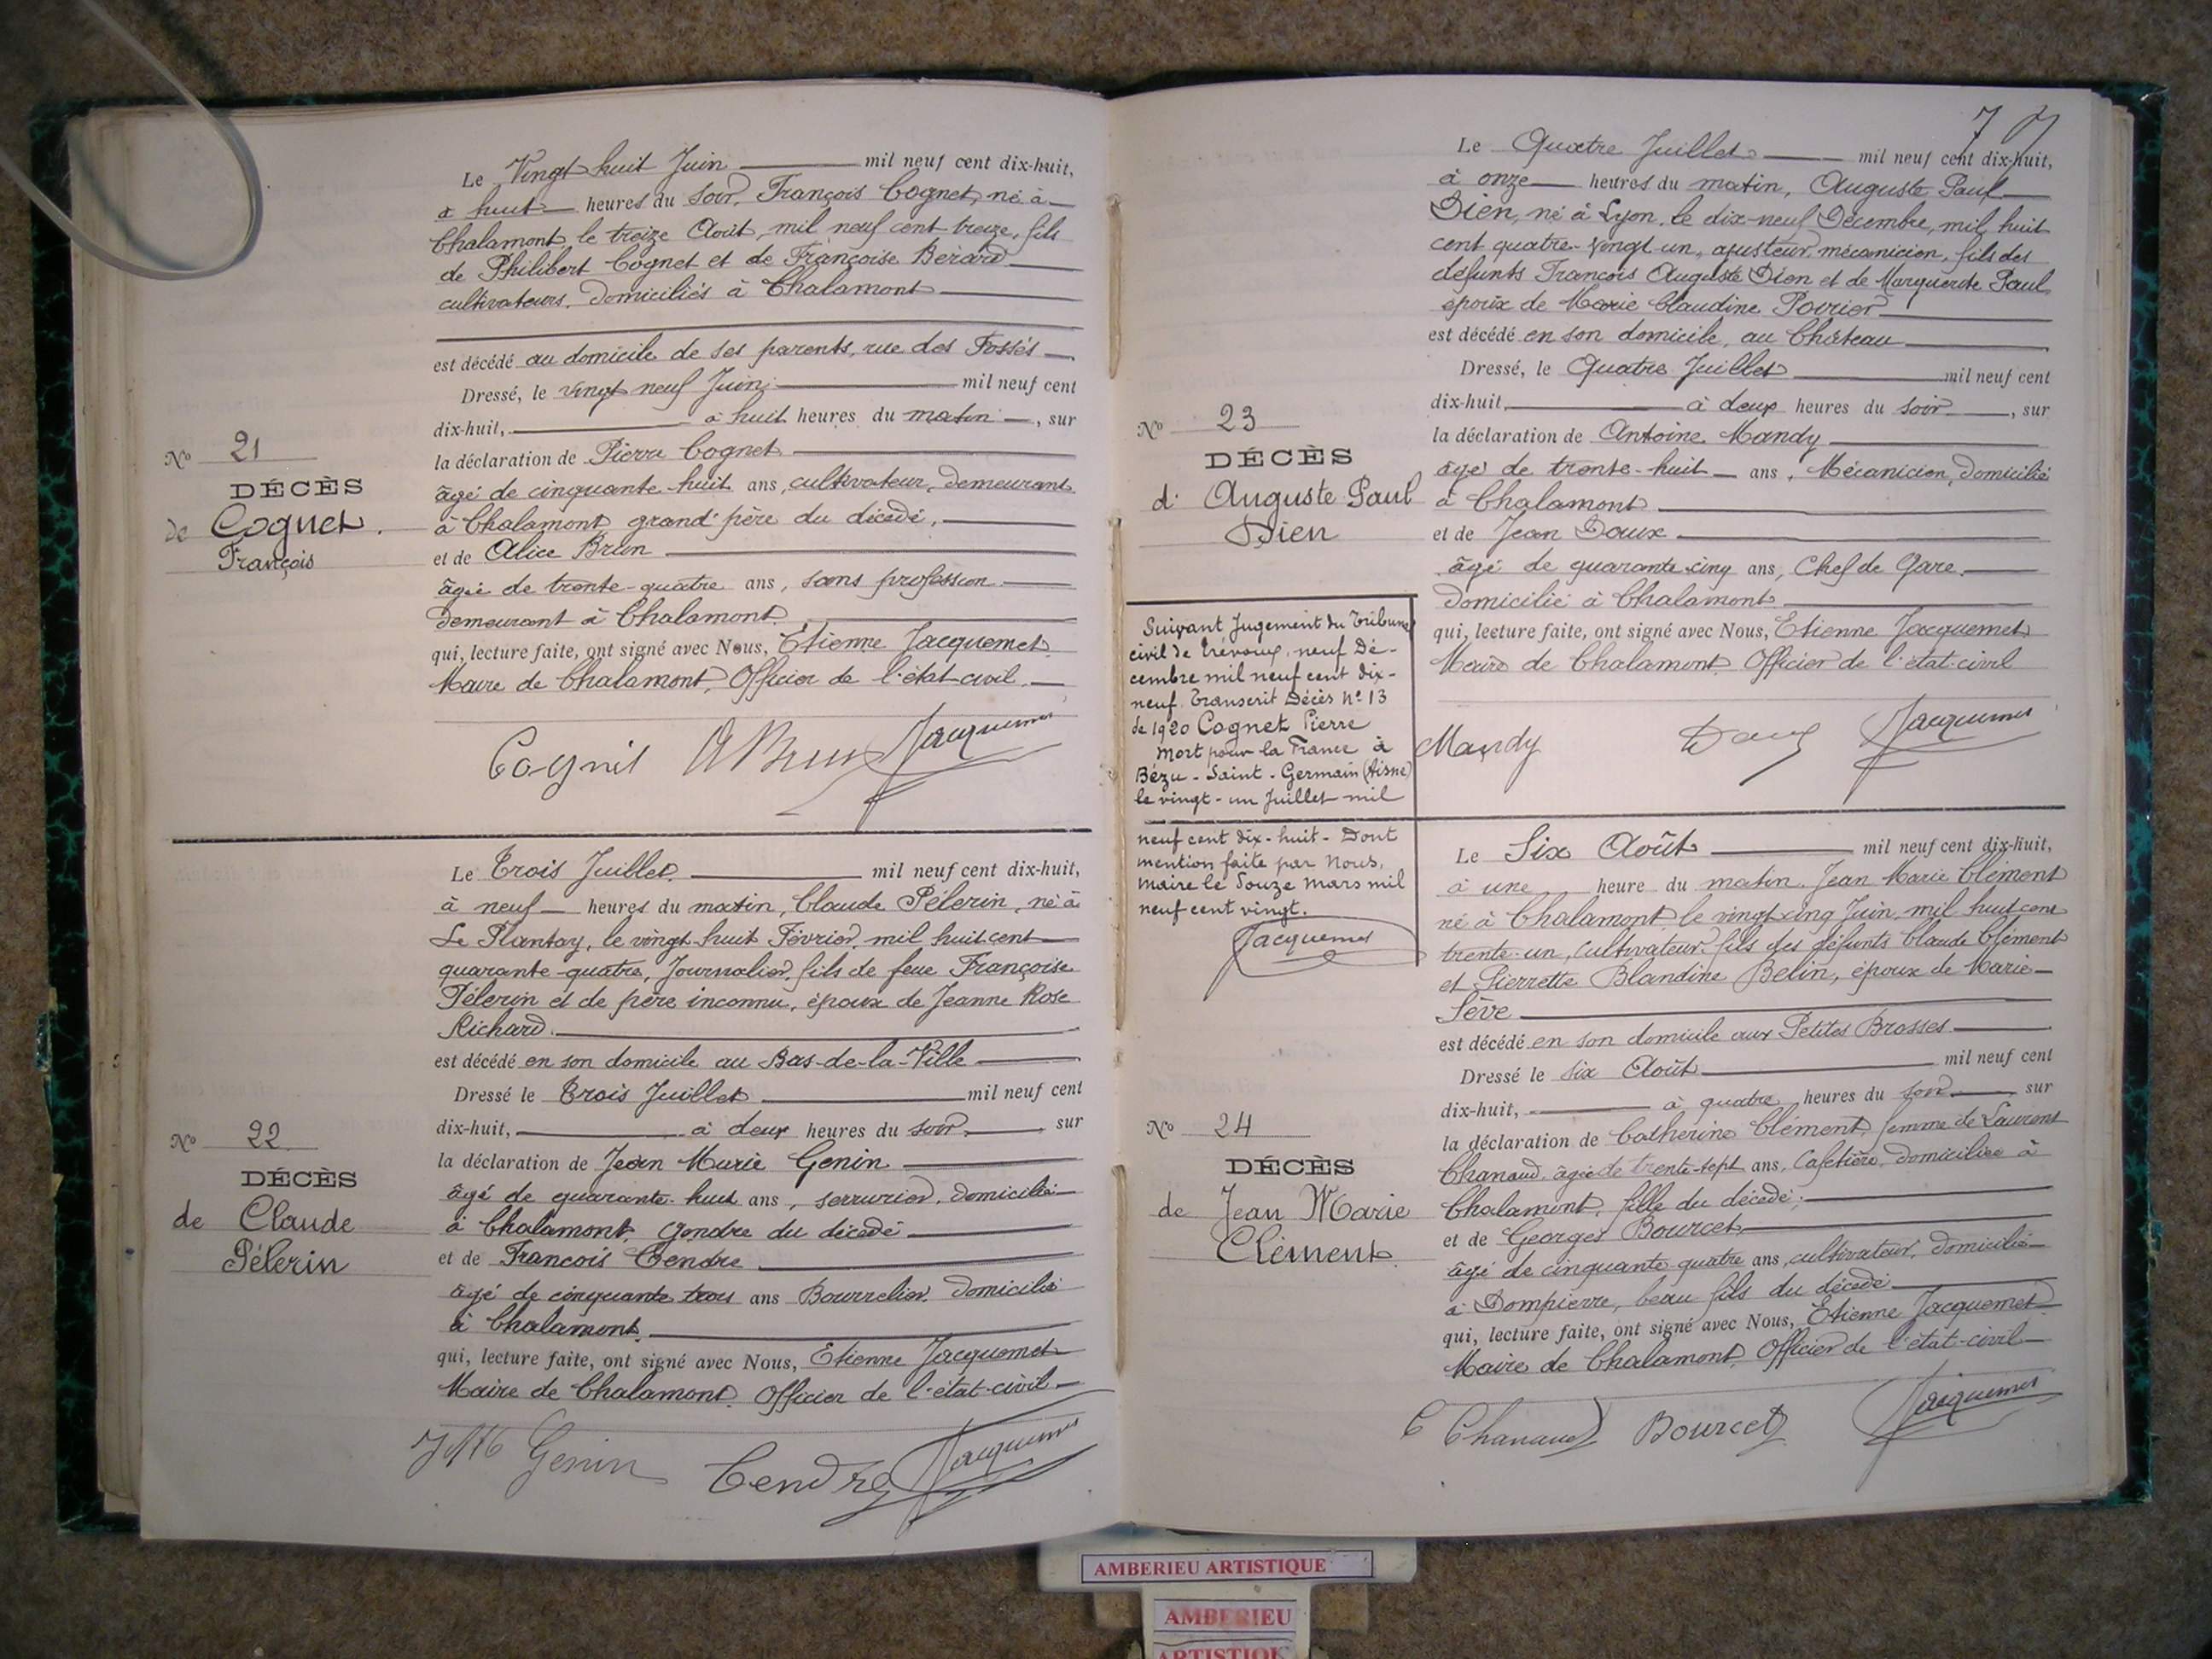 Le Vingt huit Juin mil neuf cent dix-huit,
à huit heures du soir, François Cognet, né à
Chalamont le treize Août, mil neuf cent treize, fils
de Philibert Cognet et de Françoise Bérard
cultivateurs, domiciliés à Chalamont
est décédé au domicile de ses parents, rue des Fossés
Dressé, le vingt neuf Juin mil neuf cent
dix-huit, à huit heures du matin, sur
la déclaration de Pierre Cognet
âgé de cinquante-huit ans, cultivateur, demeurant
à Chalamont, grand'père du décédé,
et de Alice Brun
âgée de trente-quatre ans, sans profession
demeurant à Chalamont
qui, lecture faite, ont signé avec Nous, Etienne Jacquemet
Maire de Chalamont, Officier de l'état-civil
Nº 21
DÉCÈS
de Cognet.
François
Cognet A Brun Jacquemet
Le Trois Juillet mil neuf cent dix-huit,
à neuf heures du matin, Claude Pélerin, né à
Le Plantay, le vingt-huit Février, mil huit cent
quarante-quatre, Journalier, fils de feue Françoise
Pélerin et de père inconnu, époux de Jeanne Rose
Richard.
est décédé en son domicile au Bas-de-la-Ville
Dressé le Trois Juillet mil neuf cent
dix-huit, à deux heures du soir, sur
la déclaration de Jean Marie Genin
âgé de quarante-huit ans, serrurier, domicilié
à Chalamont, gendre du décédé
et de François Cendre
âgé de cinquante trois ans Bourrelier, domicilié
à Chalamont
qui, lecture faite, ont signé avec Nous, Etienne Jacquemet
Maire de Chalamont, Officier de l'état-civil
Nº 22
DÉCÈS
de Claude
Pélerin
Genin Cendre Jacquemet
Le Quatre Juillet mil neuf cent dix-huit,
à onze heures du matin, Auguste Paul
Dien, né à Lyon, le dix-neuf Décembre, mil huit
cent quatre-vingt-un, ajusteur mécanicien, fils des
défunts François Auguste Dien et de Marguerite Paul,
époux de Marie Claudine Poirier
est décédé en son domicile, au Château
Dressé, le Quatre Juillet mil neuf cent
dix-huit, à deux heures du soir, sur
la déclaration de Antoine Mandy
âgé de trente-huit ans, Mécanicien, domicilié
à Chalamont
et de Jean Doux
âgé de quarante cinq ans, Chef de Gare
domicilié à Chalamont
qui, lecture faite, ont signé avec Nous, Etienne Jacquemet
Maire de Chalamont, Officier de l'état-civil
Nº 23
DÉCÈS
d' Auguste Paul
Dien
Mandy Doux Jacquemet
Suivant Jugement du Tribunal
civil de Trévoux, neuf Dé-
cembre mil neuf cent dix-
neuf. Transcrit Décès Nº 13
de 1920 Cognet Pierre
Mort pour la France à
Bézu-Saint-Germain (Aisne)
le vingt-un Juillet mil
neuf cent dix-huit - Dont
mention faite par Nous,
maire le Douze Mars mil
neuf cent vingt.
Jacquemet
Le Six Août mil neuf cent dix-huit,
à une heure du matin, Jean Marie Clément
né à Chalamont le vingt cinq Juin, mil huit cent
trente-un, cultivateur, fils des défunts Claude Clément
et Pierrette Blandine Belin, époux de Marie
Sève
est décédé en son domicile aux Petites Brosses
Dressé le six Août mil neuf cent
dix-huit, à quatre heures du soir sur
la déclaration de Catherine Clément, femme de Laurent
Chanaud, âgée de trente-sept ans, Cafetière, domiciliée à
Chalamont, fille du décédé;
et de Georges Bourcet
âgé de cinquante quatre ans, cultivateur, domicilié
à Dompierre, beau fils du décédé
qui, lecture faite, ont signé avec Nous, Etienne Jacquemet
Maire de Chalamont, Officier de l'état-civil
Nº 24
DÉCÈS
de Jean Marie
Clément
C Chanaud Bourcet Jacquemet
AMBERIEU ARTISTIQUE
AMBERIEU
ARTISTIQUE